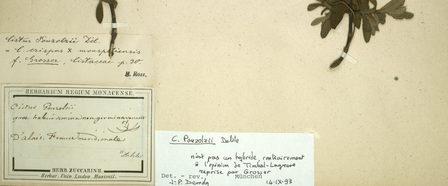 Cistus Pouzolzii Del.
= C. crispus × monspeliensis
f. Grosser, Cistaceae p. 20
H. Ross.
HERBARIUM REGIUM MONACENSE.
Cistus Pouzolzii
D'alais. France
Delile
HERB. ZUCCARINII
C. Pouzolzii Delile
n'est pas un hybride contrairement
à l'opinion de Timbal-Lagrave
reprise par Grosser
Det. - rev. München
J.P. Demoly 14-IX-93